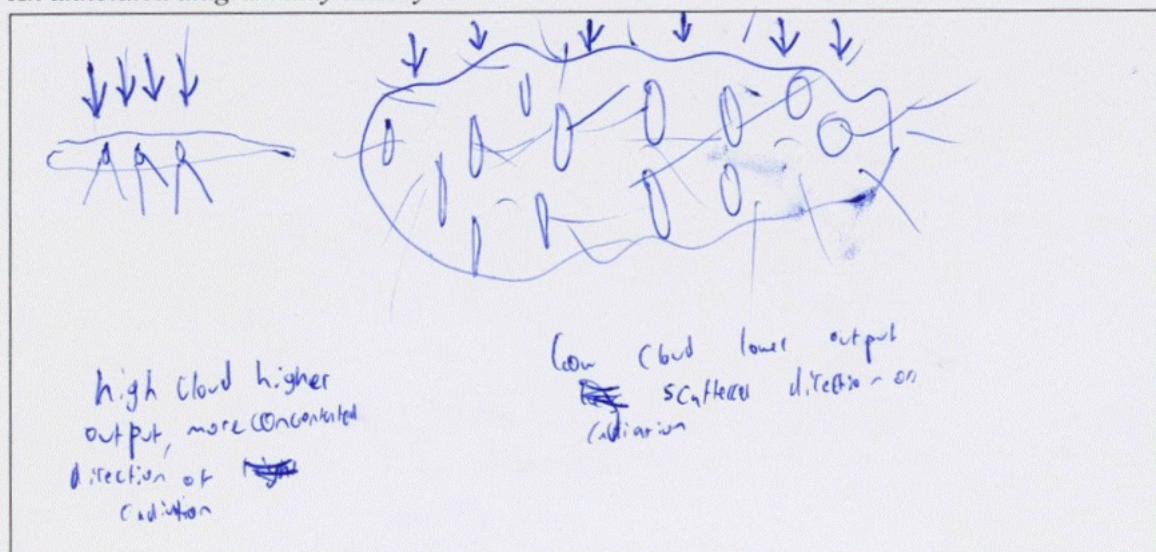 high cloud higher
output, more concentrated
direction of
radiation
Low cloud lower output
scattered direction on
radiation